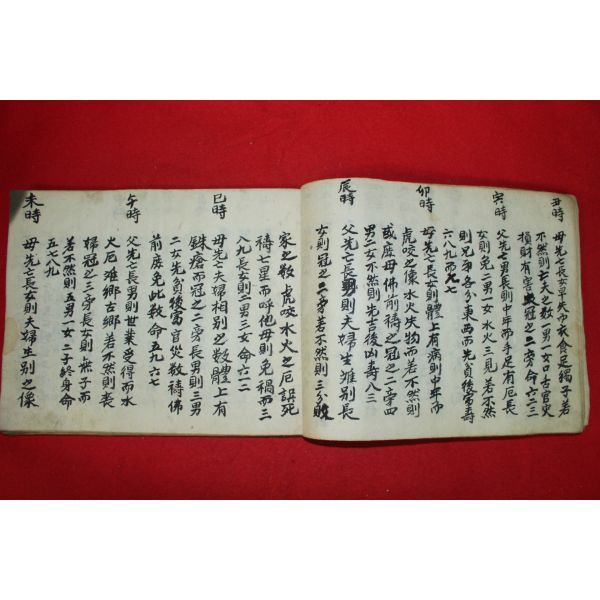 丑時
母先亡長女早失中衣食足獨子若
不然則亡夫之數一男一女口舌官災
損財有害冠之二旁命六二三
寅時
父先亡男長則中年而手足有厄長
女則免二男一女水火三見若不然
則兄弟各分東西而先貧後富壽
六八九而九七
卯時
母先亡長女則體上有病則中年而
虎咬之像水火失物而若不然則
或處母佛前禱之冠之二旁四
男二女不然則先吉後凶壽八三
辰時
父先亡長男則夫婦生離別長
女則冠之二旁若不然則三分
家之數虎咬水火之厄誤死
禱七星而呼他母則免禍而三
八九長女則二男三女命六一二
巳時
母先亡夫婦相別之數體上有
銖瘡而冠之二旁長男則三男
二女先貧後富官災數禱佛
前處免此數命五九六七
午時
父先亡長男則世業受得而水
火厄離鄉古鄉若不然則喪
婦冠之三旁長女則無子而
若不然則五男一女二子終身命
五七八九
未時
母先亡長女則夫婦生別之像